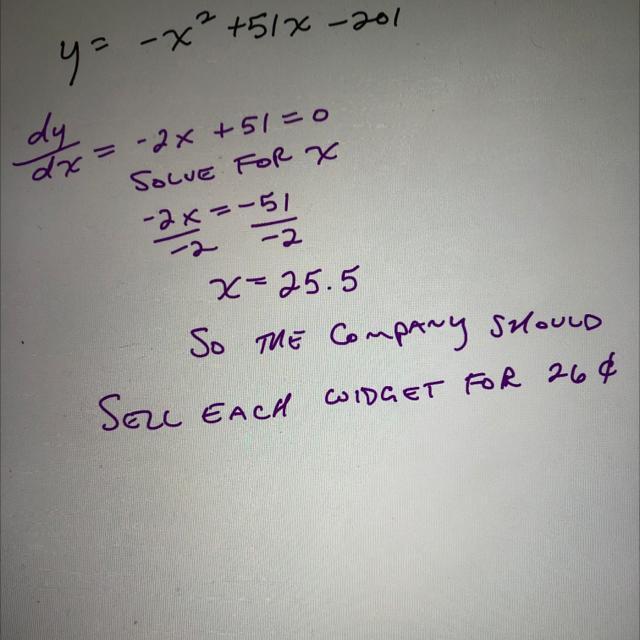 y = -x² +51x -201
dy/dx = -2x +51 = 0
SOLVE FOR x
-2x/-2 = -51/-2
x = 25.5
SO THE COMPANY SHOULD
SELL EACH WIDGET FOR 26 ¢